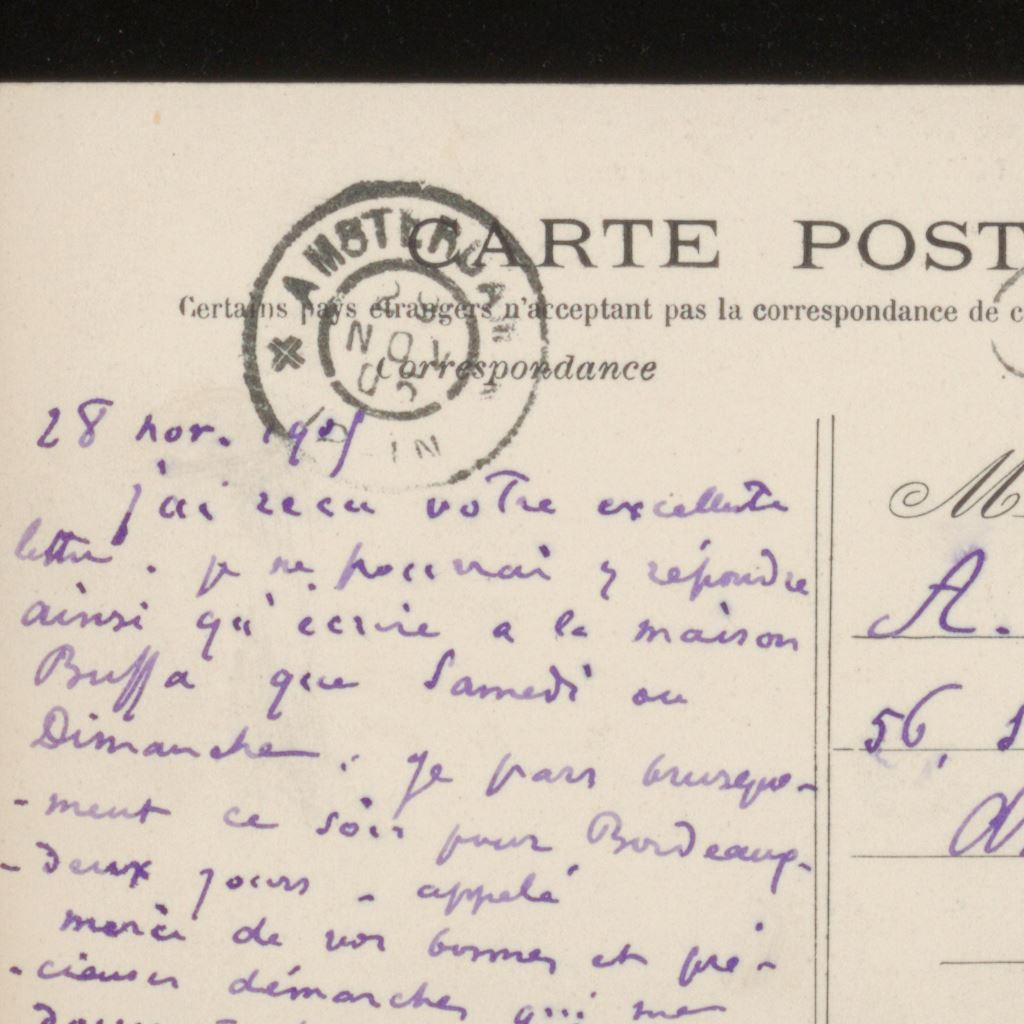 CARTE POST
Certains pays étrangers n'acceptant pas la correspondance de c
Correspondance
AMSTERDAM
NOV
05
IN
28 nov. 1905
j'ai reçu votre excellente
lettre. je ne pourrai y répondre
ainsi qu'écrire a la maison
Buffa que Samedi ou
Dimanche. je pars brusque-
-ment ce soir pour Bordeaux-
-deux jours - appelé
merci de vos bonnes et pré-
-cieuses démarches qui me
M
A.
56,